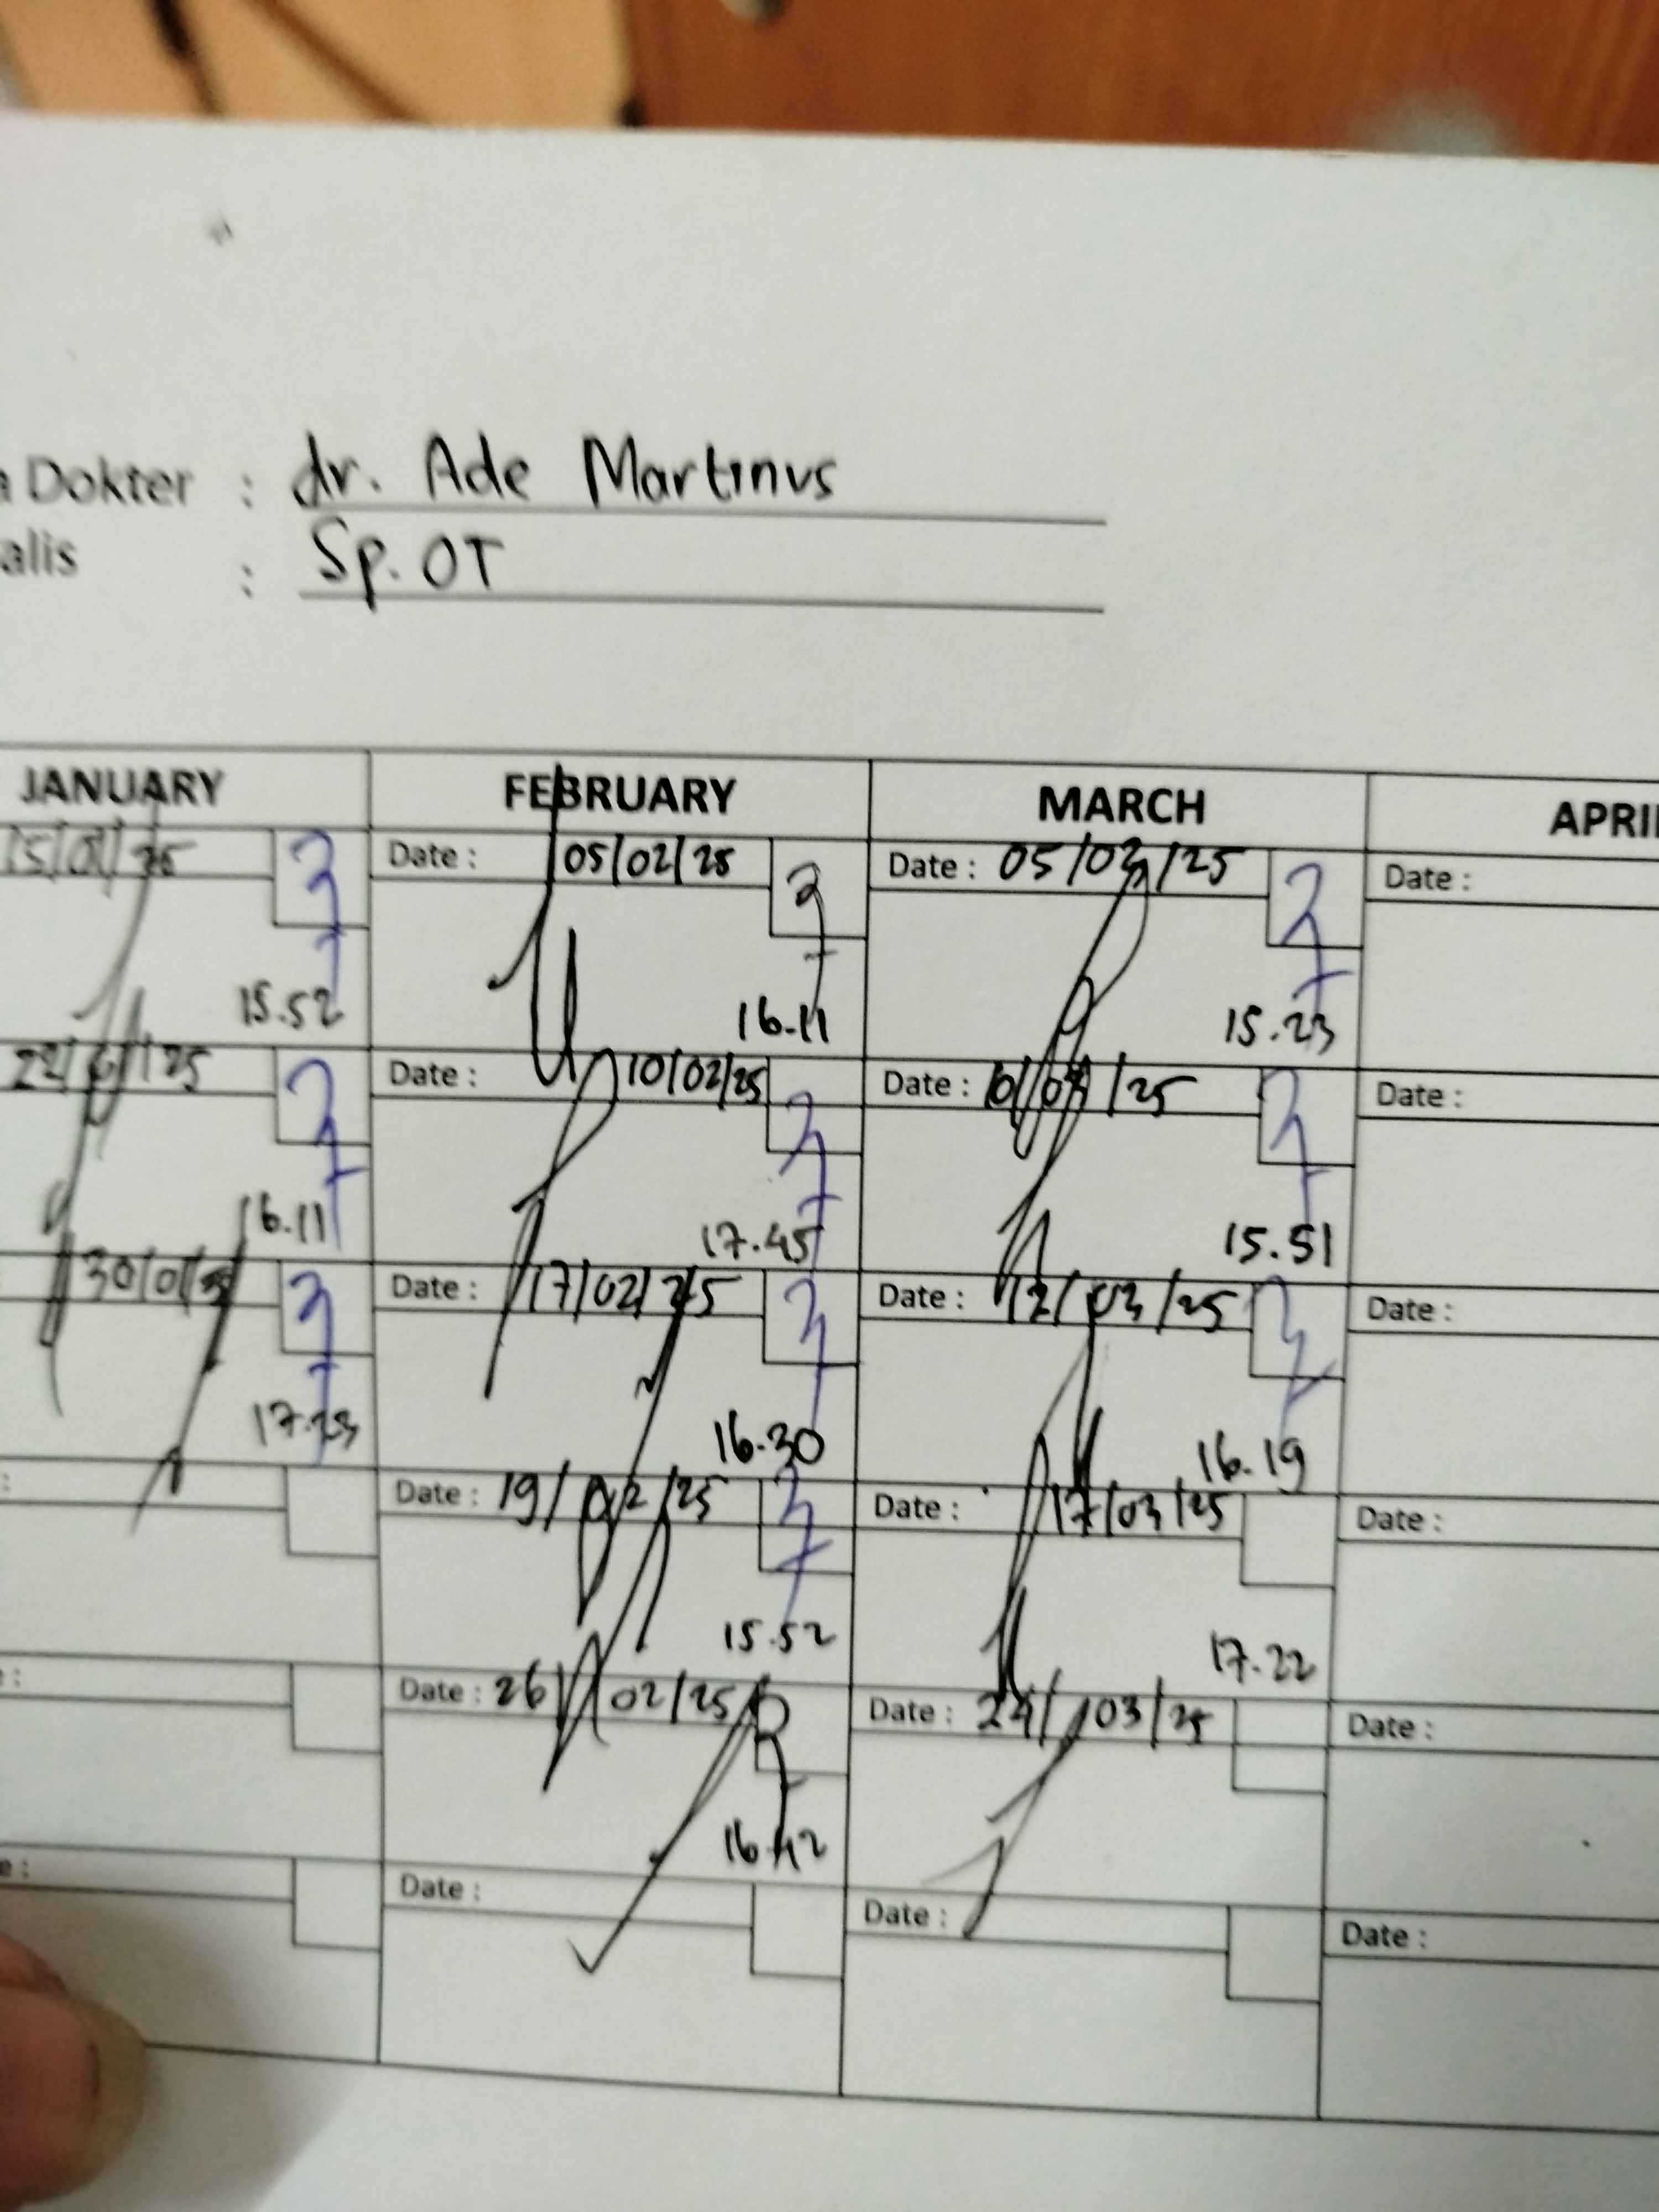 a Dokter : dr. Ade Martinus
alis : Sp. OT
JANUARY FEBRUARY MARCH APRI
15/01/25 Date : 05/02/25 Date : 05/03/25 Date :
15.52 16.11 15.23
22/01/25 Date : 10/02/25 Date : 10/03/25 Date :
16.11 17.45 15.51
30/01/25 Date : 17/02/25 Date : 12/03/25 Date :
17.23 16.30 16.19
: Date : 19/02/25 Date : 17/03/25 Date :
15.52 17.22
: Date : 26/02/25 Date : 24/03/25 Date :
16.42
e : Date : Date : Date :